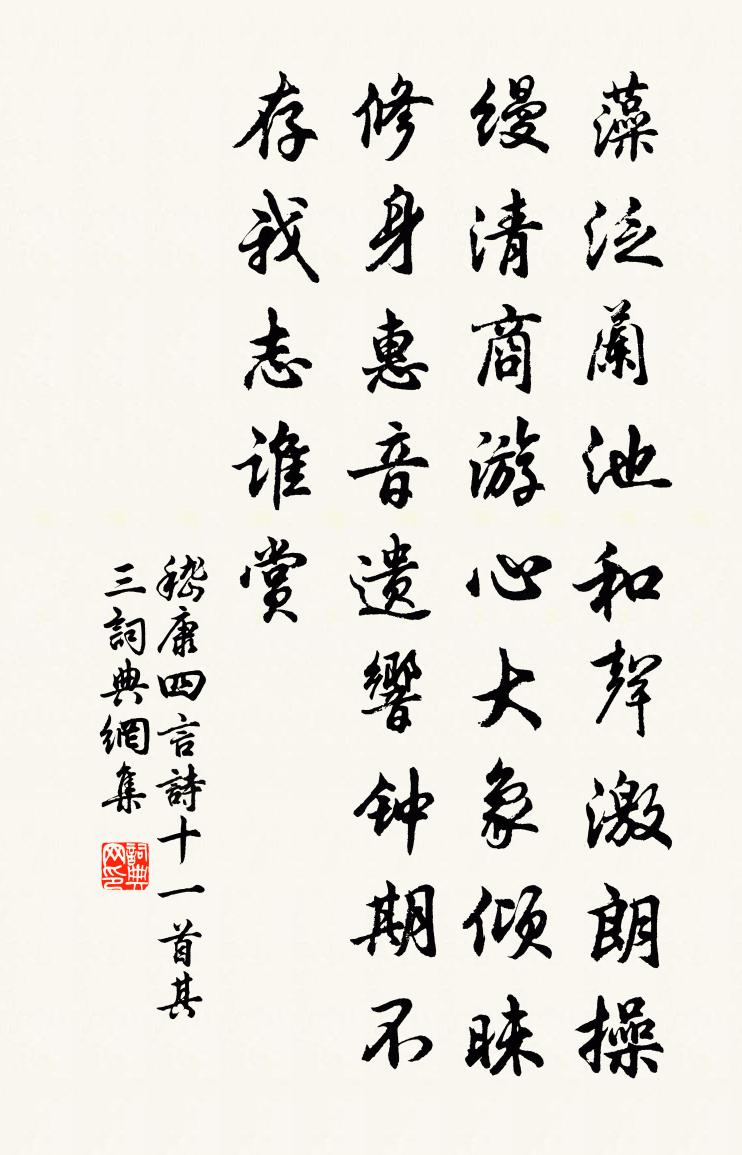 藻泛蘭池和聲激朗操
縵清商游心大象傾昧
修身惠音遺響钟期不
存我志誰赏
嵇康四言詩十一首其
三詞典網集
詞典网印